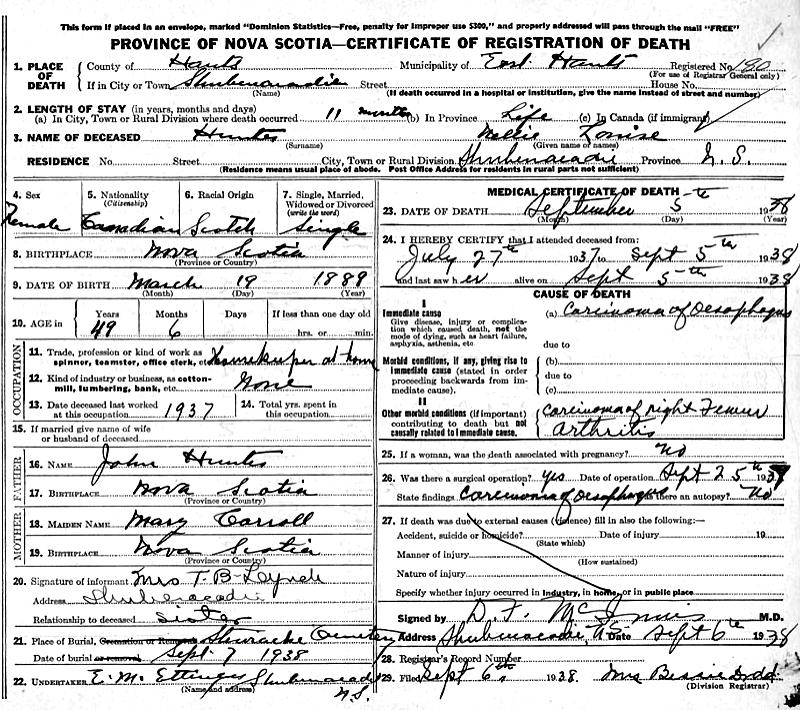 This form if placed in an envelope, marked "Dominion Statistics—Free, penalty for improper use $300," and properly addressed will pass through the mail "FREE"
PROVINCE OF NOVA SCOTIA—CERTIFICATE OF REGISTRATION OF DEATH
1. PLACE OF DEATH County of Hants Municipality of East Hants Registered No.
(For use of Registrar General only)
If in City or Town Shubenacadie Street House No.
(Name) (If death occurred in a hospital or institution, give the name instead of street and number)
2. LENGTH OF STAY (in years, months and days)
(a) In City, Town or Rural Division where death occurred 11 months (b) In Province Life (c) In Canada (if immigrant)
3. NAME OF DECEASED Hunter Nellie Louise
(Surname) (Given name or names)
RESIDENCE No. Street City, Town or Rural Division Shubenacadie Province N. S.
(Residence means usual place of abode. Post Office Address for residents in rural parts not sufficient)
4. Sex Female
5. Nationality (Citizenship) Canadian
6. Racial Origin Scotch
7. Single, Married, Widowed or Divorced (write the word) Single
8. BIRTHPLACE Nova Scotia
(Province or Country)
9. DATE OF BIRTH March 19 1889
(Month) (Day) (Year)
10. AGE in Years 49 Months 6 Days If less than one day old hrs. or min.
OCCUPATION
11. Trade, profession or kind of work as spinner, teamster, office clerk, etc. Housekeeper at home
12. Kind of industry or business, as cotton-mill, lumbering, bank, etc. None
13. Date deceased last worked at this occupation 1937
14. Total yrs. spent in this occupation
15. If married give name of wife or husband of deceased
FATHER
16. NAME John Hunter
17. BIRTHPLACE Nova Scotia
(Province or Country)
MOTHER
18. MAIDEN NAME Mary Carroll
19. BIRTHPLACE Nova Scotia
(Province or Country)
20. Signature of informant Mrs T. B. Lynch
Address Shubenacadie
Relationship to deceased Sister
21. Place of Burial, Cremation or Removal Cemetery
Date of burial or removal Sept 7 1938
22. UNDERTAKER E. M. Ettinger Shubenacadie N.S.
(Name and address)
MEDICAL CERTIFICATE OF DEATH
23. DATE OF DEATH September 5th 1938
(Month) (Day) (Year)
24. I HEREBY CERTIFY that I attended deceased from:
July 27th 1937 to Sept 5th 1938
and last saw her alive on Sept 5th 1938
CAUSE OF DEATH
I
Immediate cause
Give disease, injury or complication which caused death, not the mode of dying, such as heart failure, asphyxia, asthenia, etc
(a) Carcinoma of Oesophagus
due to
Morbid conditions, if any, giving rise to immediate cause (stated in order proceeding backwards from immediate cause).
(b)
due to
(c)
II
Other morbid conditions (if important) contributing to death but not causally related to immediate cause.
Carcinoma of right Femur
Arthritis
25. If a woman, was the death associated with pregnancy? No
26. Was there a surgical operation? yes Date of operation Sept 25th 1937
State findings Carcinoma of Oesophagus Was there an autopsy? No
27. If death was due to external causes (violence) fill in also the following:—
Accident, suicide or homicide? Date of injury 19
(State which)
Manner of injury
(How sustained)
Nature of injury
Specify whether injury occurred in Industry, in home, or in public place
Signed by D. F. McInnis M.D.
Address Shubenacadie, N.S. Date Sept 6th 1938
28. Registrar's Record Number
29. Filed Sept 6th 1938. Mrs Bessie Dodd
(Division Registrar)